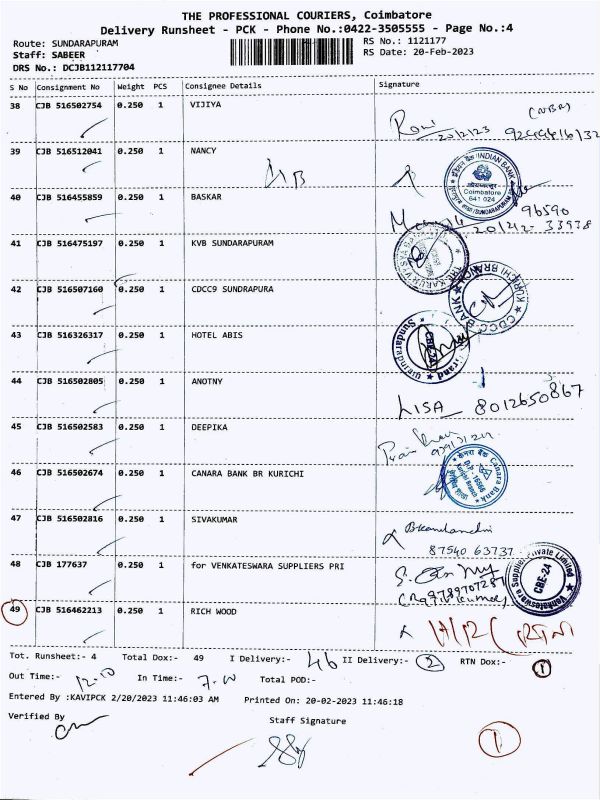 THE PROFESSIONAL COURIERS, Coimbatore
Delivery Runsheet - PCK - Phone No.:0422-3505555 - Page No.:4
Route: SUNDARAPURAM
RS No.: 1121177
Staff: SABEER
RS Date: 20-Feb-2023
DRS No.: DCJB112117704
S No Consignment No Weight PCS Consignee Details Signature
38 CJB 516502754 0.250 1 VIJIYA
20/2/23
39 CJB 516512041 0.250 1 NANCY
INDIAN BANK
Coimbatore
641 024
SUNDARAPURAM
40 CJB 516455859 0.250 1 BASKAR
96590
33938
41 CJB 516475197 0.250 1 KVB SUNDARAPURAM
42 CJB 516507160 0.250 1 CDCC9 SUNDRAPURA
CDCC BANK KURICHI BRANCH
43 CJB 516326317 0.250 1 HOTEL ABIS
44 CJB 516502805 0.250 1 ANOTNY
LISA 8012650867
45 CJB 516502583 0.250 1 DEEPIKA
46 CJB 516502674 0.250 1 CANARA BANK BR KURICHI
केनरा बैंक Canara Bank
47 CJB 516502816 0.250 1 SIVAKUMAR
87540 63737
48 CJB 177637 0.250 1 for VENKATESWARA SUPPLIERS PRI
9789707287
Venkateswara Suppliers Private Limited
CBE-24
49 CJB 516462213 0.250 1 RICH WOOD
Tot. Runsheet:- 4 Total Dox:- 49 I Delivery:- 46 II Delivery:- 2 RTN Dox:- 1
Out Time:- 12.10 In Time:- 7.00 Total POD:-
Entered By :KAVIPCK 2/20/2023 11:46:03 AM Printed On: 20-02-2023 11:46:18
Verified By
Staff Signature
1